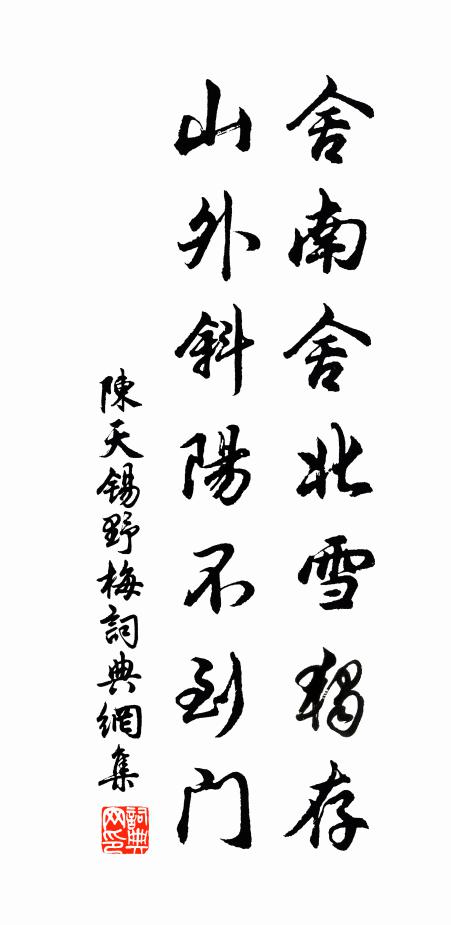 舍南舍北雪獨存
山外斜陽不到門
陳天錫野梅詞典網集
詞典網印